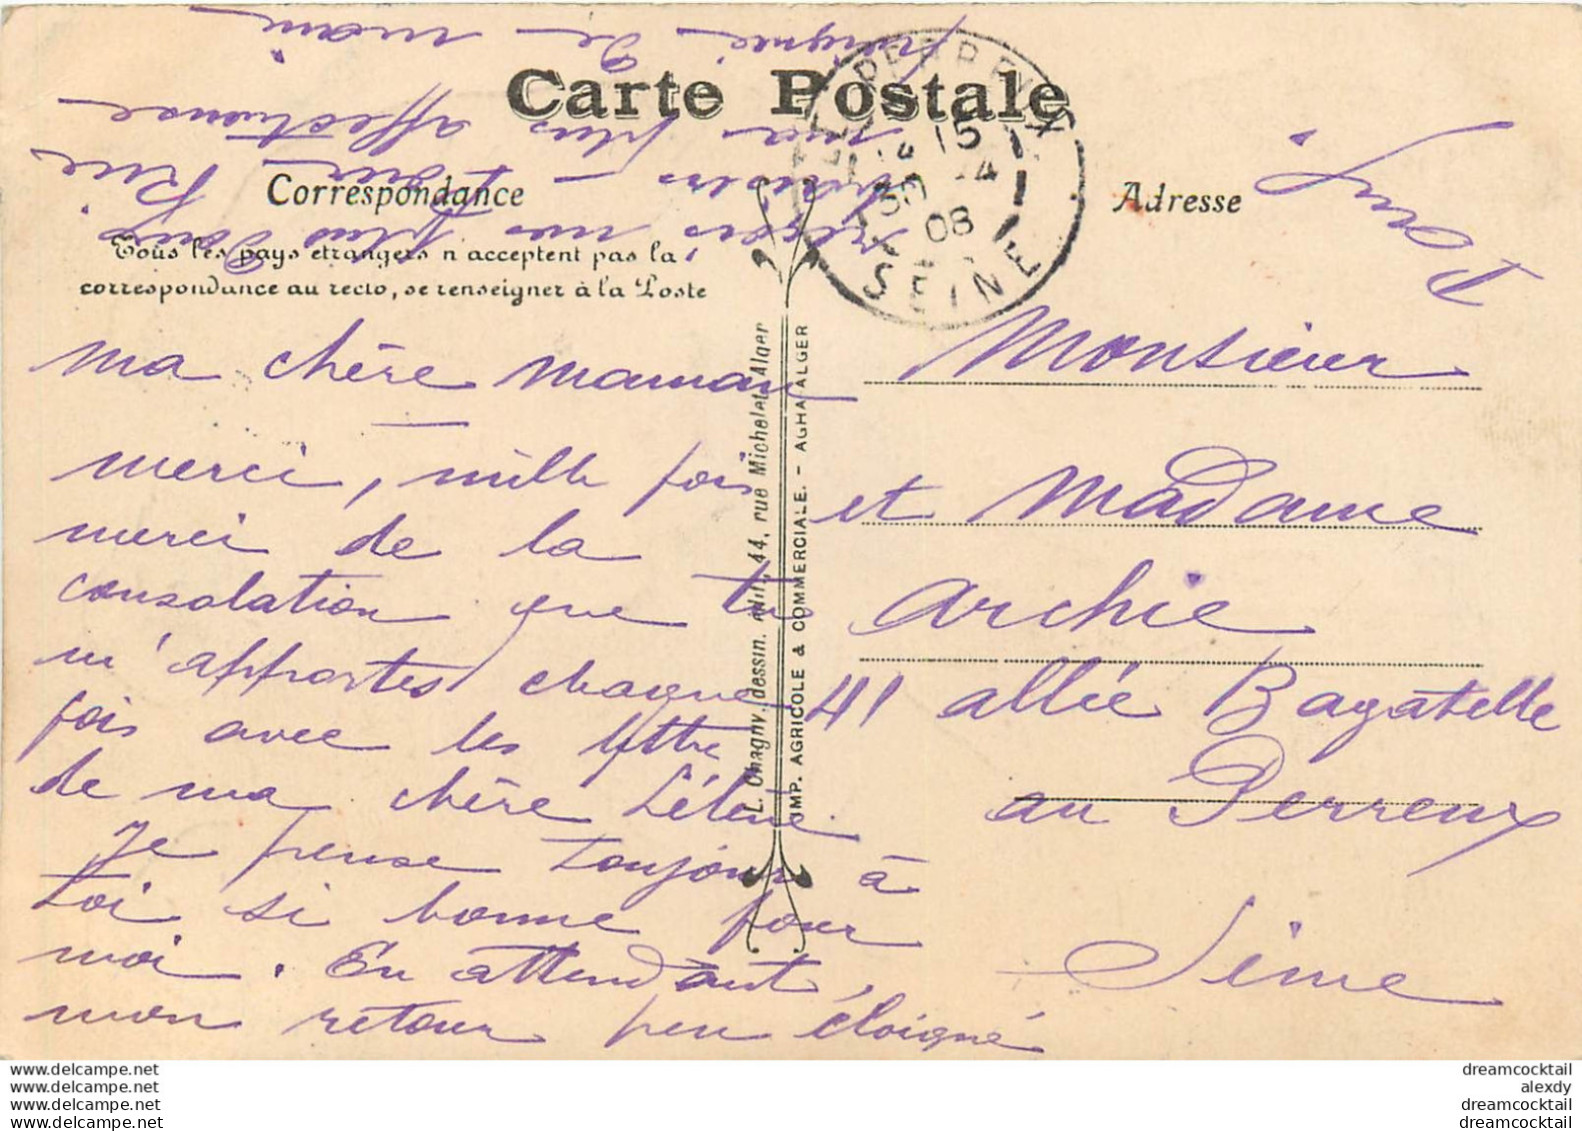 Carte Postale
Correspondance
Tous les pays étrangers n'acceptent pas la
correspondance au recto, se renseigner à la Poste
Adresse
LE PERREUX
15
-4
08
SEINE
ma chère maman
merci, mille fois
merci de la
consolation que tu
m'apportes chaque
fois avec les lettre
de ma chère Hélène
Je pense toujours à
toi si bonne pour
moi. En attendant,
mon retour peu éloigné
reçois mes plus doux
baisers –
ma plus affectueuse
poignée de main
Monsieur
et Madame
Archie
41 allée Bagatelle
au Perreux
Seine
L. Chagny, dessin. édit., 44, rue Michelet Alger
IMP. AGRICOLE & COMMERCIALE. - AGHA-ALGER
www.delcampe.net
www.delcampe.net
www.delcampe.net
www.delcampe.net
dreamcocktail
alexdy
dreamcocktail
dreamcocktail